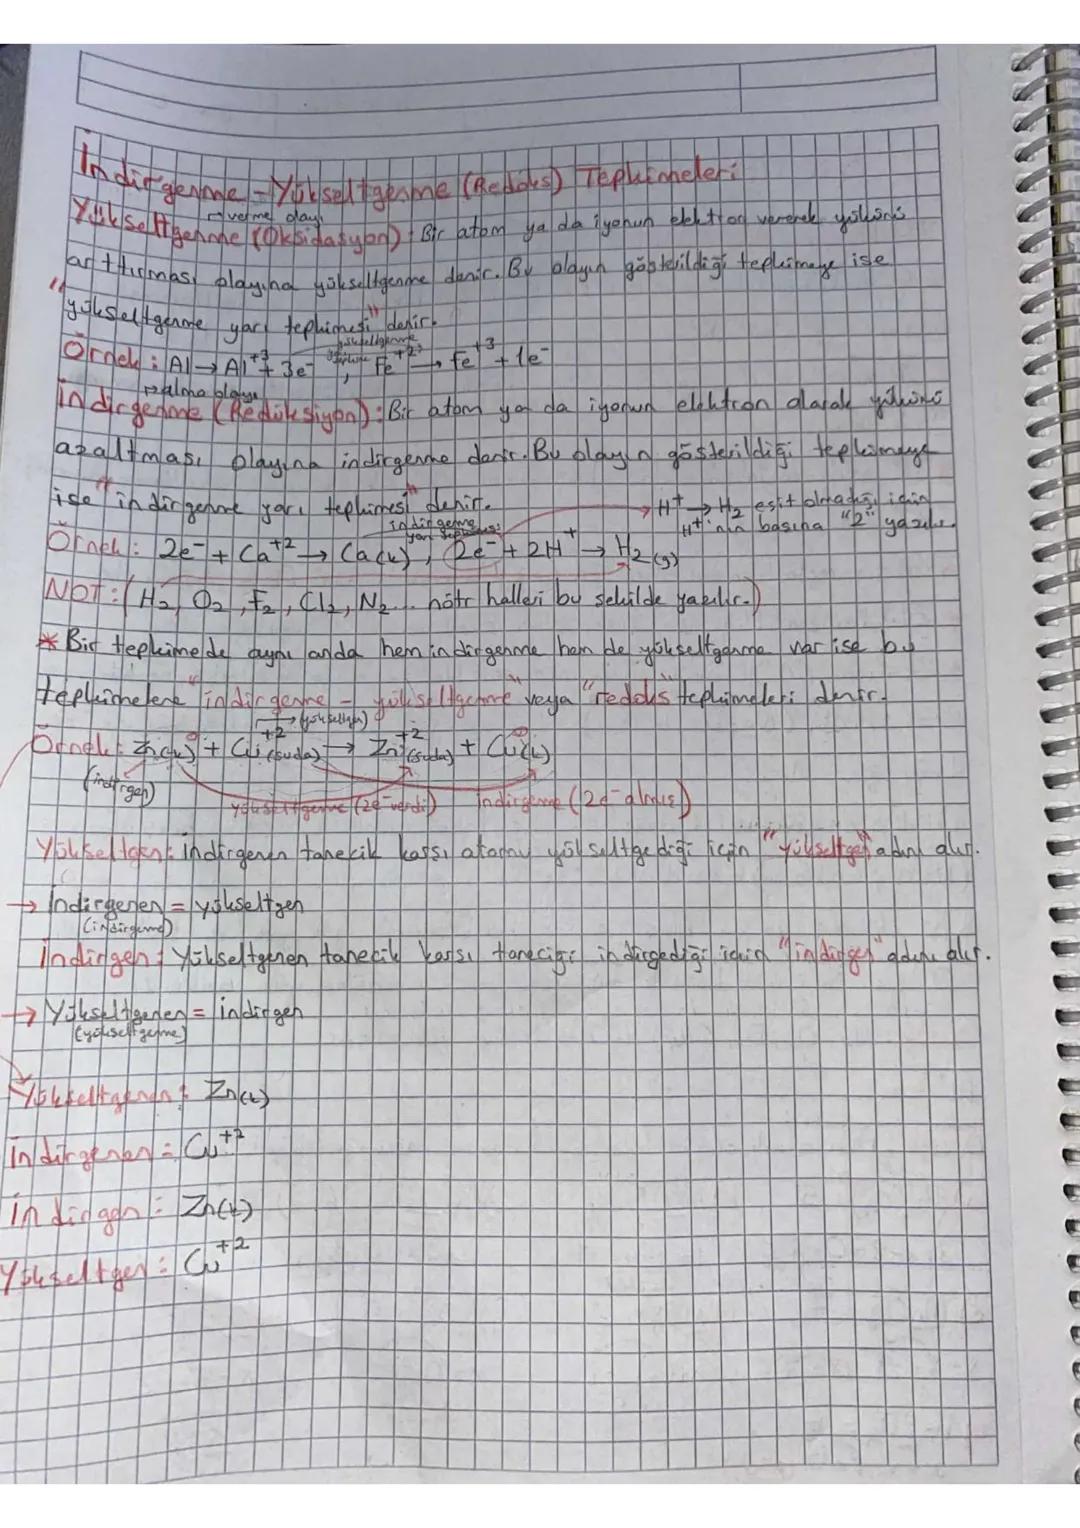 İndirgenme - Yükseltgenme (Redoks) Tepkimeleri
→ verme olayı
Yükseltgenme (Oksidasyon) : Bir atom ya da iyonun elektron vererek yükünü
arttırması olayına yükseltgenme denir. Bu olayın gösterildiği tepkimeye ise
"yükseltgenme yarı tepkimesi" denir.
Örnek : Al → Al⁺³ + 3e⁻ , Fe⁺² → Fe⁺³ + 1e⁻
→ alma olayı
İndirgenme (Redüksiyon) : Bir atom ya da iyonun elektron alarak yükünü
azaltması olayına indirgenme denir. Bu olayın gösterildiği tepkimeye
ise "indirgenme yarı tepkimesi" denir.
→ H⁺ → H₂ eşit olmadığı için
H⁺'nın başına "2" yazılır.
indirgenme yarı tepkimesi
Örnek : 2e⁻ + Ca⁺² → Ca(k) , 2e⁻ + 2H⁺ → H₂(g)
NOT : ( H₂, O₂, F₂, Cl₂, N₂... nötr halleri bu şekilde yazılır.)
* Bir tepkimede aynı anda hem indirgenme hem de yükseltgenme var ise bu
tepkimelere "indirgenme - yükseltgenme" veya "redoks" tepkimeleri denir.
→ (yükseltgen)
Örnek : Zn(k)⁰ + Cu⁺²(suda) → Zn⁺²(suda) + Cu⁰(k)
(indirgen)
yükseltgenme (2e⁻ verdi) indirgenme (2e⁻ almış)
Yükseltgen : İndirgenen tanecik karşı atomu yükseltgediği için "yükseltgen" adını alır.
→ İndirgenen = yükseltgen
(indirgeme)
İndirgen : Yükseltgenen tanecik karşı taneciği indirgediği için "indirgen" adını alır.
→ Yükseltgenen = indirgen
(yükseltgenme)
Yükseltgenen : Zn(k)
İndirgenen = Cu⁺²
İndirgen : Zn(k)
Yükseltgen : Cu⁺²